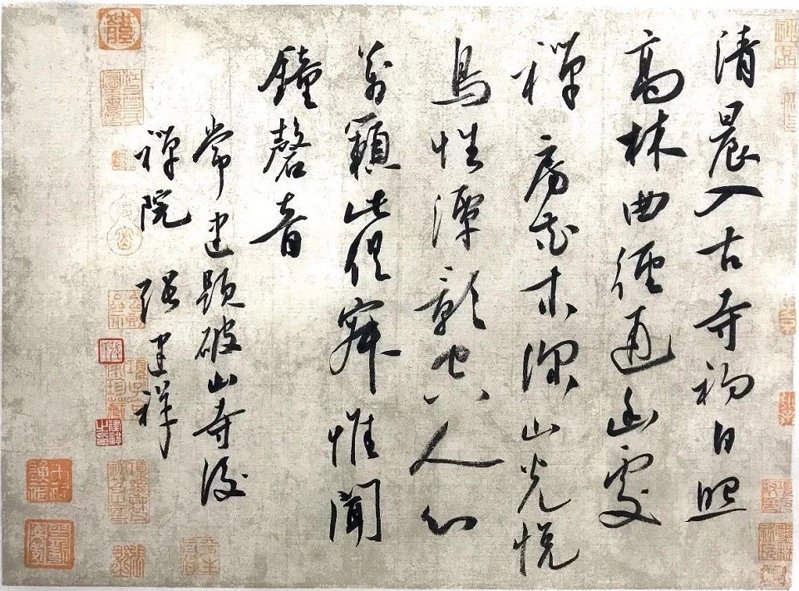 清晨入古寺初日照
高林曲徑通幽處
禪房花木深山光悦
鳥性潭影空人心
萬籟此俱寂惟聞
鐘磬音
常建題破山寺後
禪院 建祥